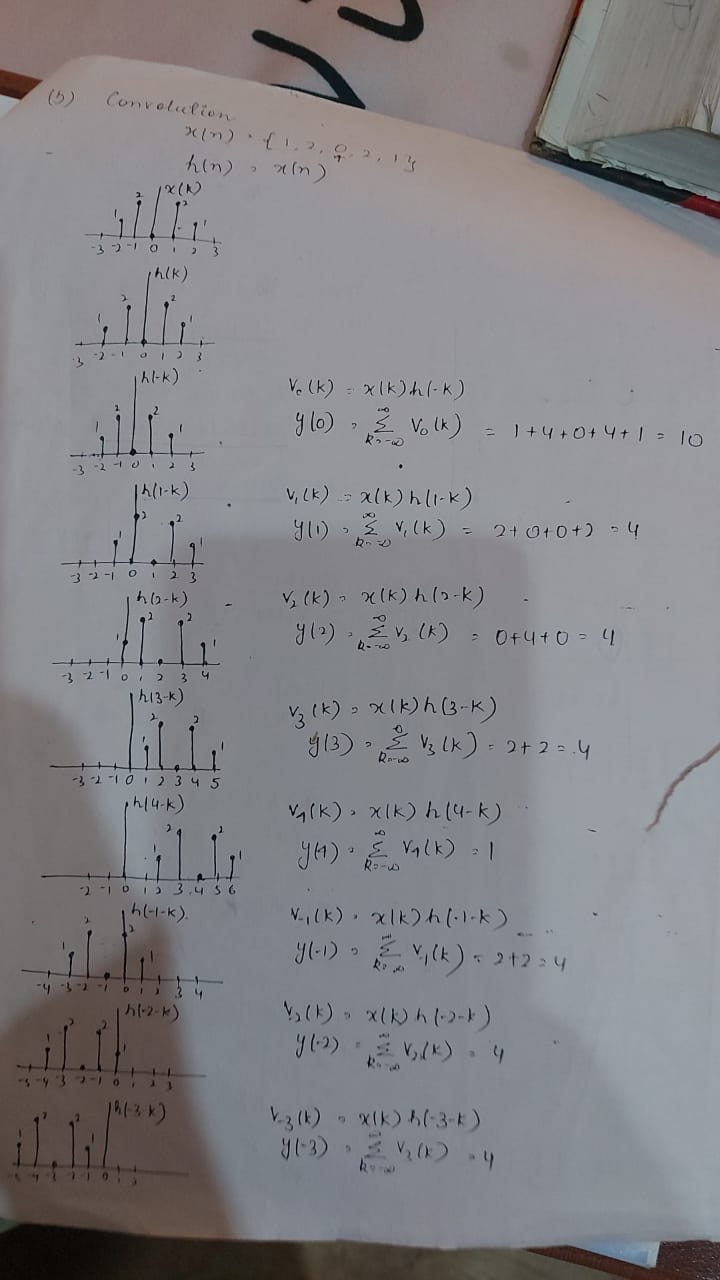 (b) Convolution
x(n) = {1, 2, 0, 2, 1}
↑
h(n) = x(n)
x(k)
1 2 2 1
-3 -2 -1 0 1 2 3
h(k)
1 2 2 1
-3 -2 -1 0 1 2 3
h(-k)
1 2 2 1
-3 -2 -1 0 1 2 3
V₀(k) = x(k)h(-k)
y(0) = ∞Σk=-∞ V₀(k) = 1+4+0+4+1 = 10
h(1-k)
1 2 2 1
-3 -2 -1 0 1 2 3
V₁(k) = x(k)h(1-k)
y(1) = ∞Σk=-∞ V₁(k) = 2+0+0+2 = 4
h(2-k)
1 2 2 1
-3 -2 -1 0 1 2 3 4
V₂(k) = x(k)h(2-k)
y(2) = ∞Σk=-∞ V₂(k) = 0+4+0 = 4
h(3-k)
1 2 2 1
-3 -2 -1 0 1 2 3 4 5
V₃(k) = x(k)h(3-k)
y(3) = ∞Σk=-∞ V₃(k) = 2+2 = 4
h(4-k)
1 2 2 1
-2 -1 0 1 2 3 4 5 6
V₄(k) = x(k)h(4-k)
y(4) = ∞Σk=-∞ V₄(k) = 1
h(-1-k)
1 2 2 1
-4 -3 -2 -1 0 1 2 3 4
V₋₁(k) = x(k)h(-1-k)
y(-1) = Σk=-∞ V₋₁(k) = 2+2 = 4
h(-2-k)
1 2 2 1
-5 -4 -3 -2 -1 0 1 2 3
V₋₂(k) = x(k)h(-2-k)
y(-2) = Σk=-∞ V₋₂(k) = 4
h(-3-k)
2 2 1
-5 -4 -3 -2 -1 0 1 2
V₋₃(k) = x(k)h(-3-k)
y(-3) = Σk=-∞ V₃(k) = 4